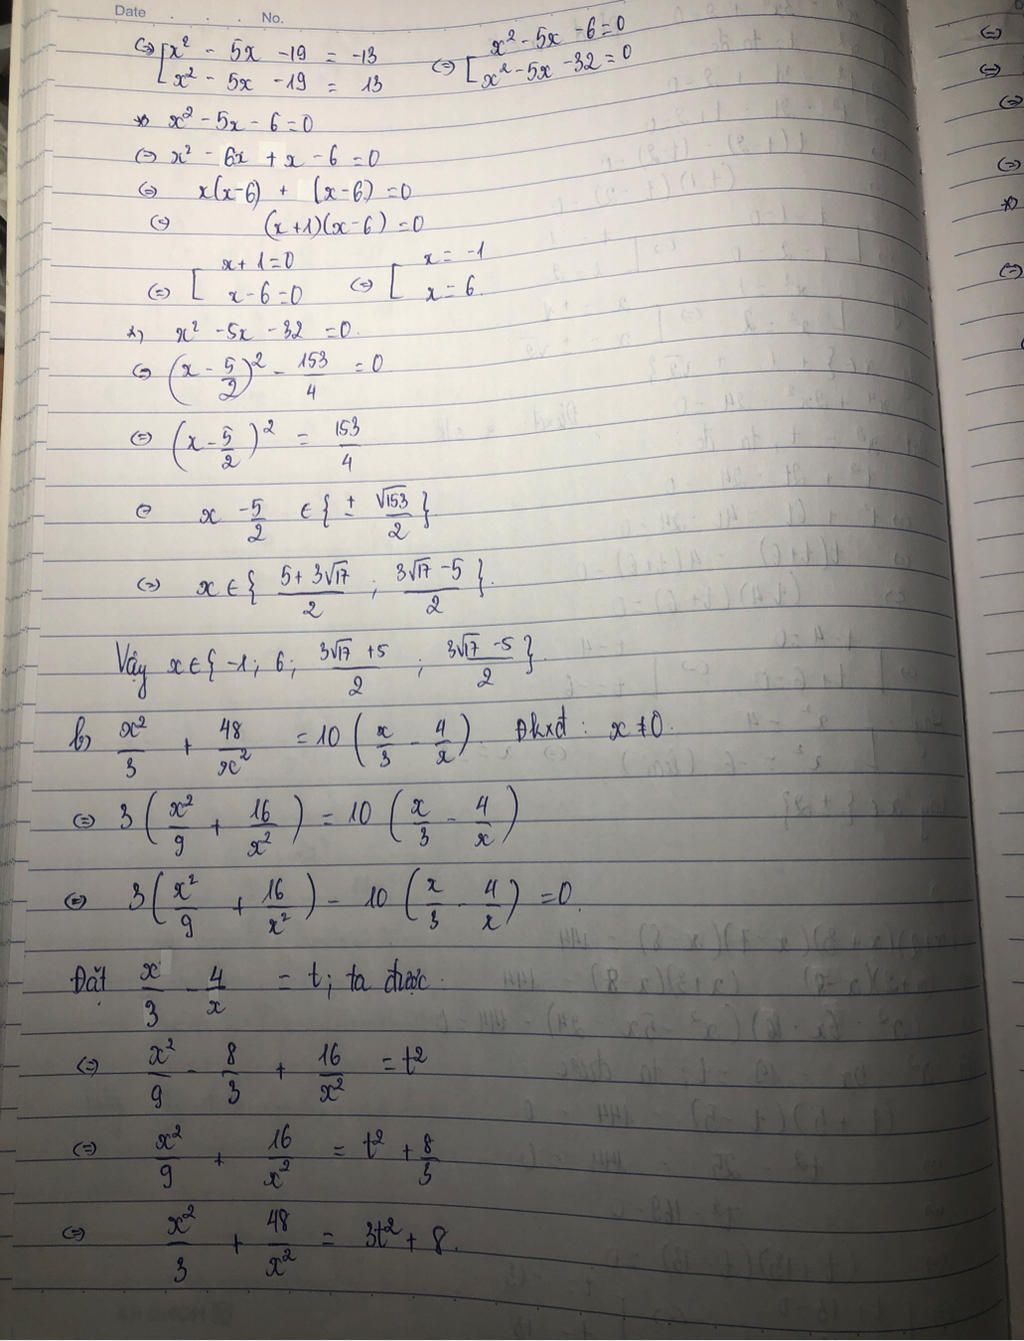 Date . . . No.
(=) [ x² - 5x - 19 = -13 (=) [ x² - 5x - 6 = 0
x² - 5x - 19 = 13 x² - 5x - 32 = 0
*) x² - 5x - 6 = 0
(=) x² - 6x + x - 6 = 0
(=) x(x-6) + (x-6) = 0
(=) (x+1)(x-6) = 0
(=) [ x + 1 = 0 (=) [ x = -1
x - 6 = 0 x = 6.
*) x² - 5x - 32 = 0.
(=) (x - 5/2)² - 153/4 = 0
(=) (x - 5/2)² = 153/4
(=) x - 5/2 ∈ { ± √153/2 }
(=) x ∈ { (5 + 3√17)/2 ; (3√17 - 5)/2 }.
Vậy x ∈ { -1 ; 6 ; (3√17 + 5)/2 ; (3√17 - 5)/2 }.
b) x²/3 + 48/x² = 10 (x/3 - 4/x) Đkxđ : x ≠ 0.
(=) 3 (x²/9 + 16/x²) = 10 (x/3 - 4/x)
(=) 3 (x²/9 + 16/x²) - 10 (x/3 - 4/x) = 0.
Đặt x/3 - 4/x = t ; ta được.
(=) x²/9 - 8/3 + 16/x² = t²
(=) x²/9 + 16/x² = t² + 8/3
(=) x²/3 + 48/x² = 3t² + 8.